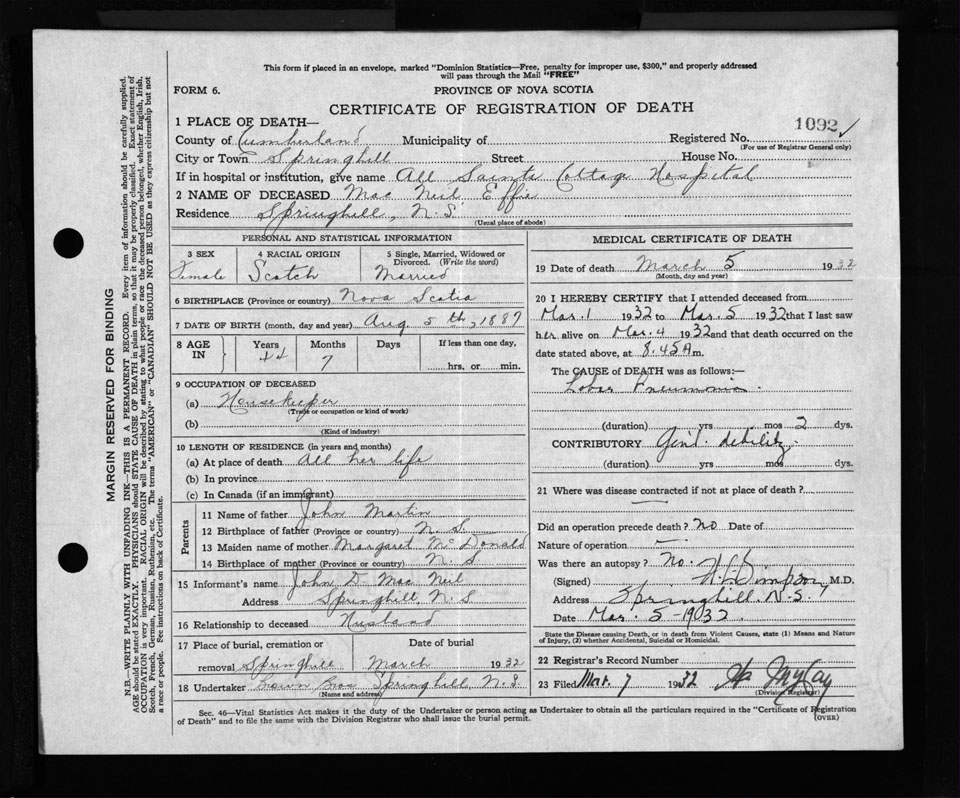 This form if placed in an envelope, marked "Dominion Statistics—Free, penalty for improper use, $300," and properly addressed
will pass through the Mail "FREE"
FORM 6. PROVINCE OF NOVA SCOTIA
CERTIFICATE OF REGISTRATION OF DEATH
1 PLACE OF DEATH— 1092 ✓
County of Cumberland Municipality of Registered No.
(For use of Registrar General only)
City or Town Springhill Street House No.
If in hospital or institution, give name All Saints Cottage Hospital
2 NAME OF DECEASED Mac Neil Effie
Residence Springhill, N.S.
(Usual place of abode)
PERSONAL AND STATISTICAL INFORMATION
3 SEX 4 RACIAL ORIGIN 5 Single, Married, Widowed or
Divorced. (Write the word)
Female Scotch Married
6 BIRTHPLACE (Province or country) Nova Scotia
7 DATE OF BIRTH (month, day and year) Aug. 5th, 1887
8 AGE IN Years Months Days If less than one day,
44 7 hrs. or min.
9 OCCUPATION OF DECEASED
(a) Housekeeper
(Trade or occupation or kind of work)
(b)
(Kind of industry)
10 LENGTH OF RESIDENCE (in years and months)
(a) At place of death All her life
(b) In province
(c) In Canada (if an immigrant)
Parents
11 Name of father John Martin
12 Birthplace of father (Province or country) N. S.
13 Maiden name of mother Margaret McDonald
14 Birthplace of mother (Province or country) N. S
15 Informant's name John D Mac Neil
Address Springhill, N. S
16 Relationship to deceased Husband
17 Place of burial, cremation or Date of burial
removal Springhill March 1932
18 Undertaker Brown Bros Springhill, N. S.
(Name and address)
MEDICAL CERTIFICATE OF DEATH
19 Date of death March 5 1932
(Month, day and year)
20 I HEREBY CERTIFY that I attended deceased from
Mar. 1 1932 to Mar. 5 1932 that I last saw
her alive on Mar. 4 1932 and that death occurred on the
date stated above, at 8.45 A m.
The CAUSE of DEATH was as follows:—
Lobar Pneumonia.
(duration) yrs mos 2 dys.
CONTRIBUTORY Gen'l. debility
(duration) yrs mos dys.
21 Where was disease contracted if not at place of death?
—
Did an operation precede death? no Date of
Nature of operation —
Was there an autopsy? No.
(Signed) Simpson, M.D.
Address Springhill. N.S.
Date Mar. 5 - 1932
State the Disease causing Death, or in death from Violent Causes, state (1) Means and Nature
of Injury, (2) whether Accidental, Suicidal or Homicidal.
22 Registrar's Record Number
23 Filed Mar. 7 1932
(Division Registrar)
Sec. 46—Vital Statistics Act makes it the duty of the Undertaker or person acting as Undertaker to obtain all the particulars required in the "Certificate of Registration
of Death" and to file the same with the Division Registrar who shall issue the burial permit. (OVER)
MARGIN RESERVED FOR BINDING
N.B.—WRITE PLAINLY WITH UNFADING INK—THIS IS A PERMANENT RECORD. Every item of information should be carefully supplied.
AGE should be stated EXACTLY. PHYSICIANS should STATE CAUSE OF DEATH in plain terms, so that it may be properly classified. Exact statement of
OCCUPATION is very important. RACIAL ORIGIN will be described by stating to what people or race the deceased person belonged, whether English, Irish,
Scotch, French, German, Russian, Ruthenian, etc. The terms "AMERICAN" or "CANADIAN" SHOULD NOT BE USED as they express citizenship but not
a race or people. See instructions on back of Certificate.